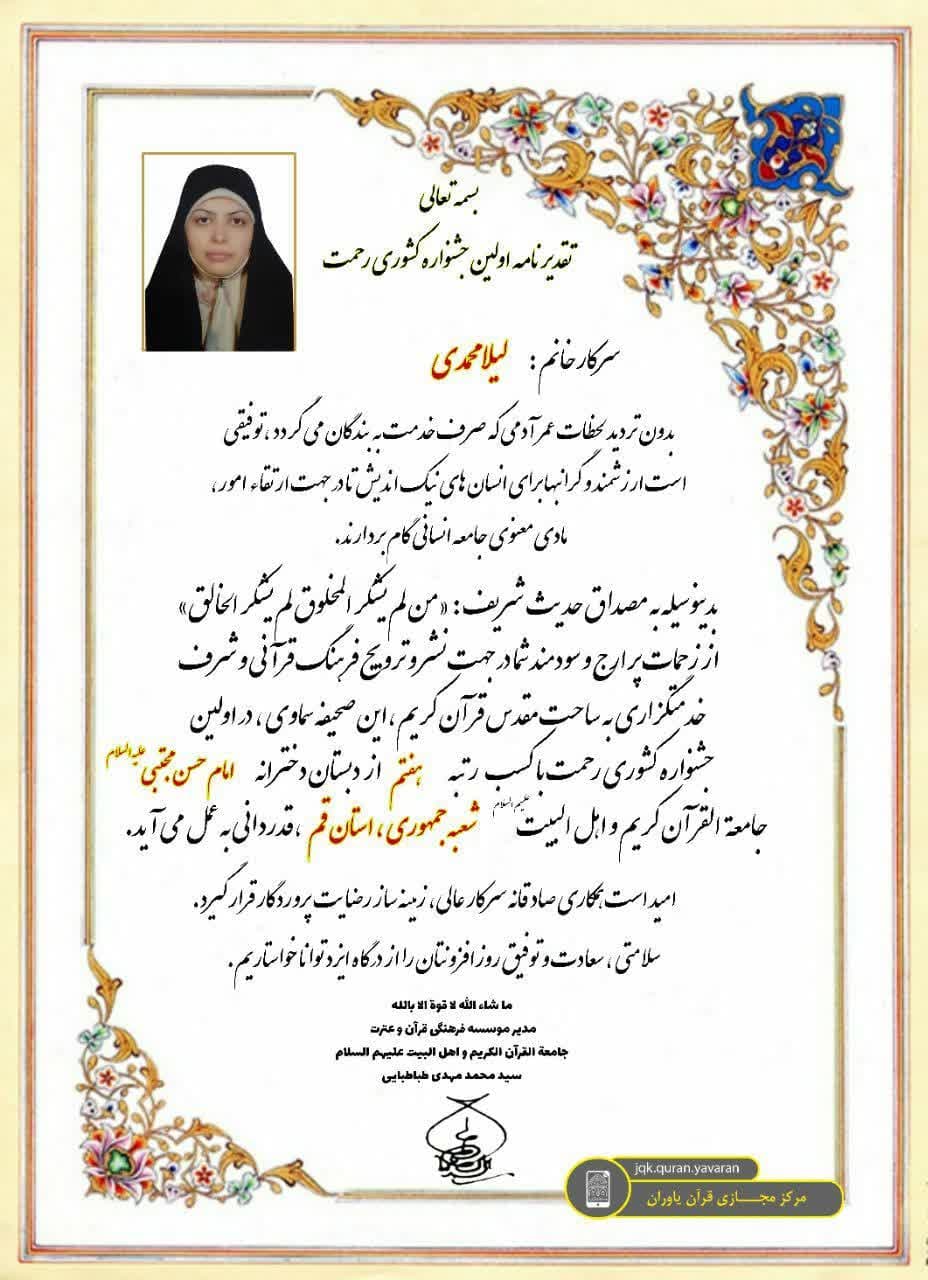 بسمه تعالی
تقدیرنامه اولین جشنواره کشوری رحمت
سرکار خانم : لیلا محمدی
بدون تردید لحظات عمر آدمی که صرف خدمت به بندگان می گردد ، توفیقی
است ارزشمند و گرانبها برای انسان های نیک اندیش تا در جهت ارتقاء امور ،
مادی معنوی جامعه انسانی گام بردارند.
بدینوسیله به مصداق حدیث شریف : «من لم یشکر المخلوق لم یشکر الخالق»
از زحمات پر ارج و سودمند شما در جهت نشر و ترویج فرهنگ قرآنی و شرف
خدمتگزاری به ساحت مقدس قرآن کریم ، این صحیفه سماوی ، در اولین
جشنواره کشوری رحمت با کسب رتبه هفتم از دبستان دخترانه امام حسن مجتبی علیه السلام
جامعة القرآن کریم و اهل البیت علیهم السلام شعبه جمهوری ، استان قم ، قدردانی به عمل می آید.
امید است همکاری صادقانه سرکار عالی، زمینه ساز رضایت پروردگار قرار گیرد.
سلامتی ، سعادت و توفیق روز افزونتان را از درگاه ایزد توانا خواستاریم.
ما شاء الله لا قوة الا بالله
مدیر موسسه فرهنگی قرآن و عترت
جامعة القرآن الکریم و اهل البیت علیهم السلام
سید محمد مهدی طباطبایی
jqk.quran.yavaran
مرکز مجـــازی قرآن یاوران